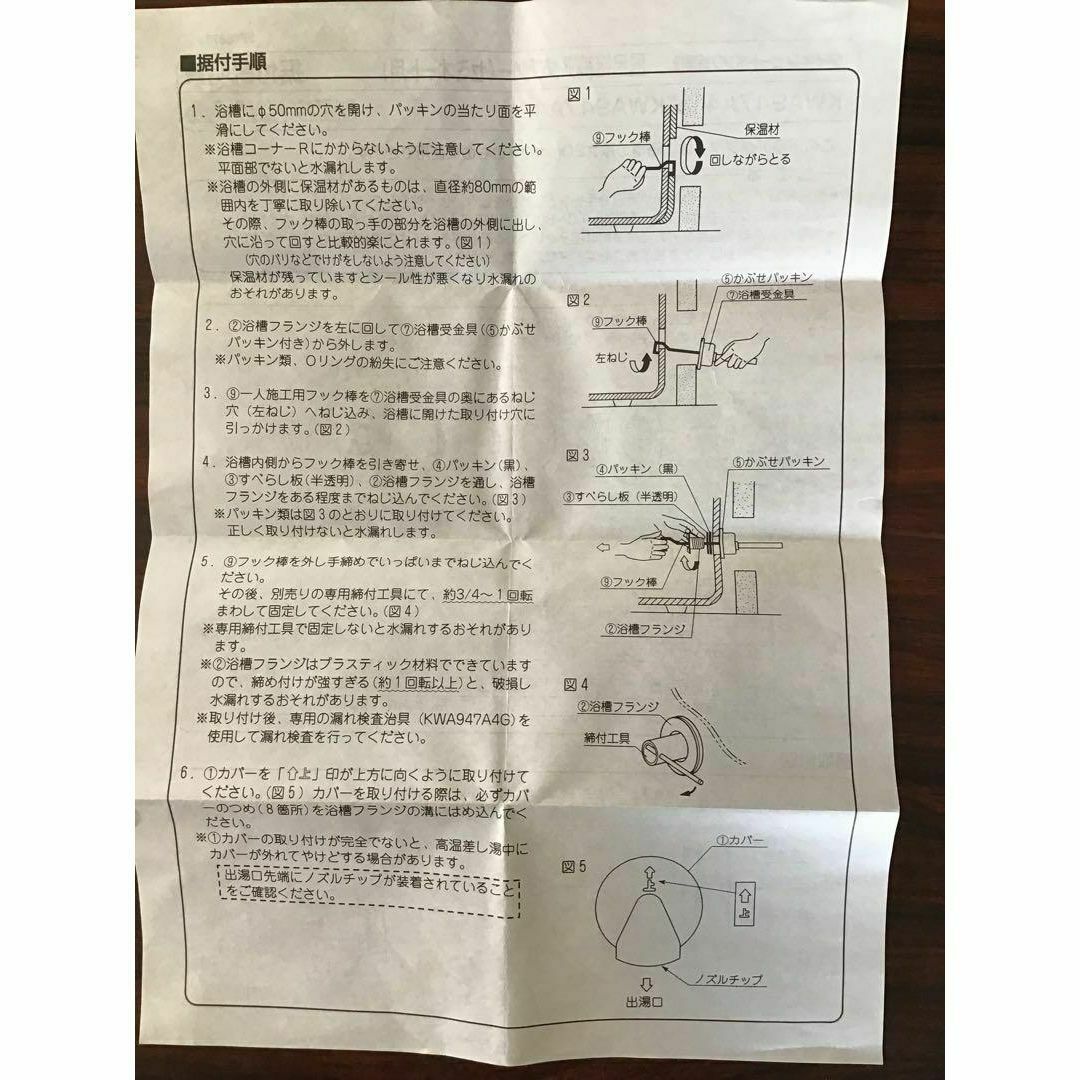 ■据付手順
1．浴槽にφ50mmの穴を開け、パッキンの当たり面を平
滑にしてください。
※浴槽コーナーRにかからないように注意してください。
平面部でないと水漏れします。
※浴槽の外側に保温材があるものは、直径約80mmの範
囲内を丁寧に取り除いてください。
その際、フック棒の取っ手の部分を浴槽の外側に出し、
穴に沿って回すと比較的楽にとれます。(図1)
(穴のバリなどでけがをしないよう注意してください)
保温材が残っていますとシール性が悪くなり水漏れの
おそれがあります。
2．②浴槽フランジを左に回して⑦浴槽受金具(⑤かぶせ
パッキン付き)から外します。
※パッキン類、Oリングの紛失にご注意ください。
3．⑨一人施工用フック棒を⑦浴槽受金具の奥にあるねじ
穴（左ねじ）へねじ込み、浴槽に開けた取り付け穴に
引っかけます。(図2)
4．浴槽内側からフック棒を引き寄せ、④パッキン(黒)、
③すべらし板(半透明)、②浴槽フランジを通し、浴槽
フランジをある程度までねじ込んでください。(図3)
※パッキン類は図3のとおりに取り付けてください。
正しく取り付けないと水漏れします。
5．⑨フック棒を外し手締めでいっぱいまでねじ込んでく
ださい。
その後、別売りの専用締付工具にて、約3/4～1回転
まわして固定してください。(図4)
※専用締付工具で固定しないと水漏れするおそれがあり
ます。
※②浴槽フランジはプラスティック材料でできています
ので、締め付けが強すぎる(約1回転以上)と、破損し
水漏れするおそれがあります。
※取り付け後、専用の漏れ検査治具（KWA947A4G)を
使用して漏れ検査を行ってください。
6．①カバーを「⇧上」印が上方に向くように取り付けて
ください。(図5) カバーを取り付ける際は、必ずカバ
ーのつめ(8箇所)を浴槽フランジの溝にはめ込んでく
ださい。
※①カバーの取り付けが完全でないと、高温差し湯中に
カバーが外れてやけどする場合があります。
出湯口先端にノズルチップが装着されていること
をご確認ください。
図1
保温材
⑨フック棒
回しながらとる
図2
⑤かぶせパッキン
⑦浴槽受金具
⑨フック棒
左ねじ
図3
④パッキン（黒）
⑤かぶせパッキン
③すべらし板（半透明）
⑨フック棒
②浴槽フランジ
図4
②浴槽フランジ
締付工具
図5
①カバー
⇧上
⇧上
ノズルチップ
出湯口